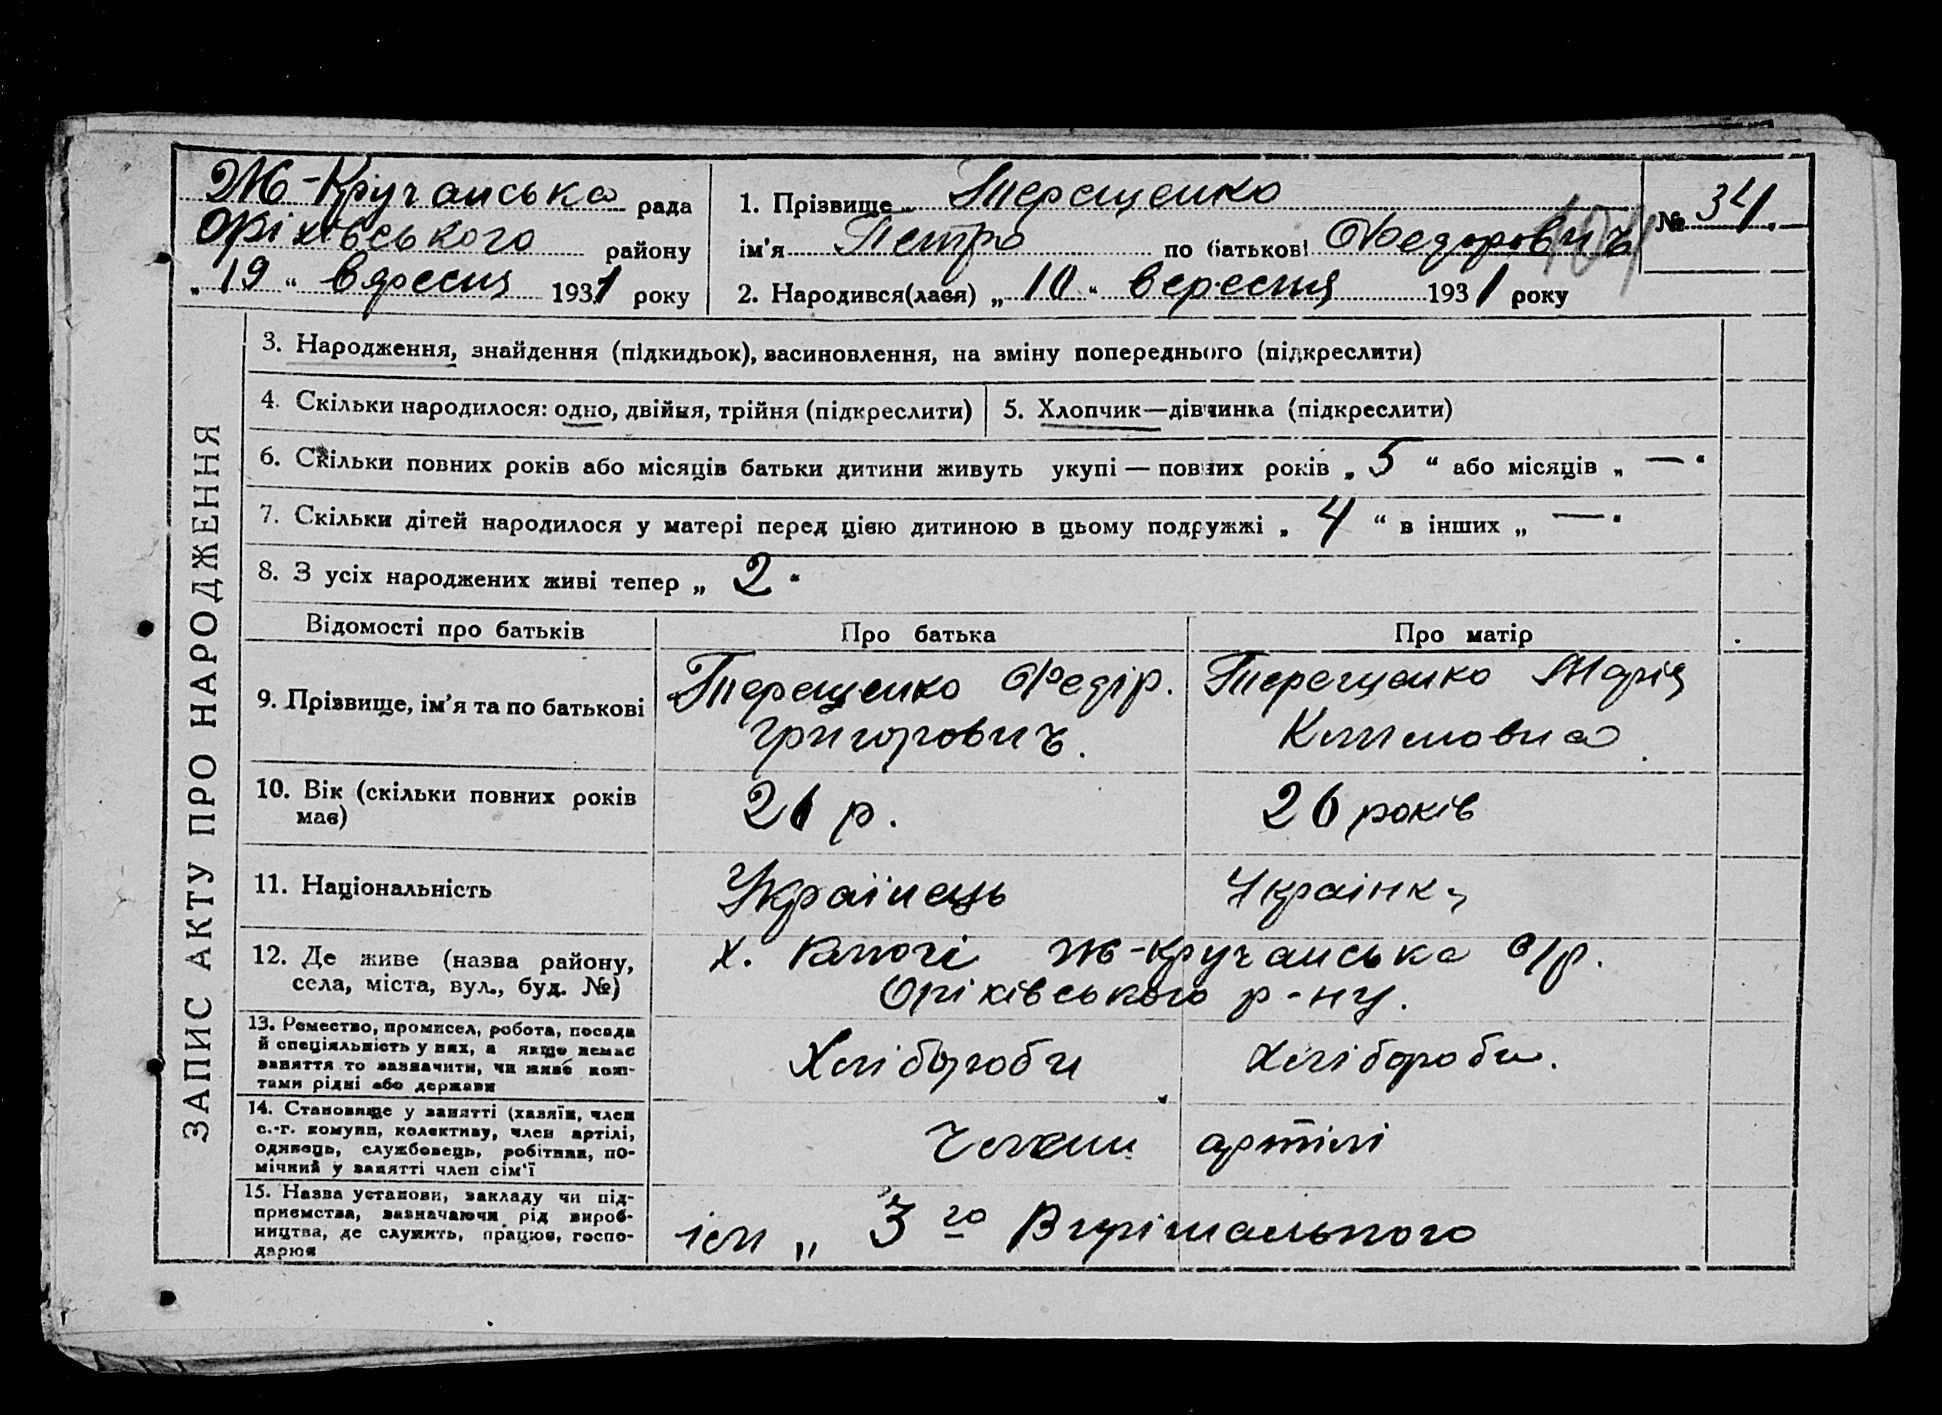 Ж-Кручанська рада
Оріхівського району
„ 19 “ вересня 1931 року
1. Прізвище Терещенко
ім'я Петро по батькові Федорович
2. Народився(лася) „ 10 “ вересня 1931 року
№ 34.
ЗАПИС АКТУ ПРО НАРОДЖЕННЯ
3. Народження, знайдення (підкидьок), васиновлення, на зміну попереднього (підкреслити)
4. Скільки народилося: одно, двійня, трійня (підкреслити)
5. Хлопчик—дівчинка (підкреслити)
6. Скільки повних років або місяців батьки дитини живуть укупі — повних років „ 5 “ або місяців „ — “
7. Скільки дітей народилося у матері перед цією дитиною в цьому подружжі „ 4 “ в інших „ — “
8. З усіх народжених живі тепер „ 2 “
Відомості про батьків Про батька Про матір
9. Прізвище, ім'я та по батькові
Терещенко Федір.
Григорович.
Терещенко Марія
Климовна.
10. Вік (скільки повних років
має)
26 р.
26 років
11. Національність
Українець
Українка
12. Де живе (назва району,
села, міста, вул., буд. №)
х. Ж-Кручанська с/р.
Оріхівського р-ну.
13. Ремество, промисел, робота, посада
й спеціяльність у них, а якщо немає
заняття то зазначити, чи живе кош-
тами рідні або держави
Хлібороби
хлібороби.
14. Становище у занятті (хазяїн, член
с.-г. комуни, колективу, член артілі,
одинець, службовець, робітник, по-
мічний у занятті член сім'ї
Члени артілі
15. Назва установи, закладу чи під-
приємства, зазначаючи рід вироб-
ництва, де служить, працює, госпо-
дарює
ім „ 3го Вирішального